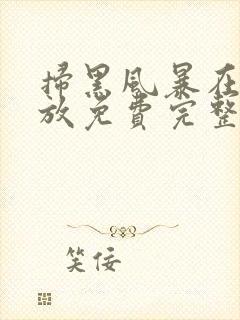 掃黑風暴在
放免費完整
笑佞